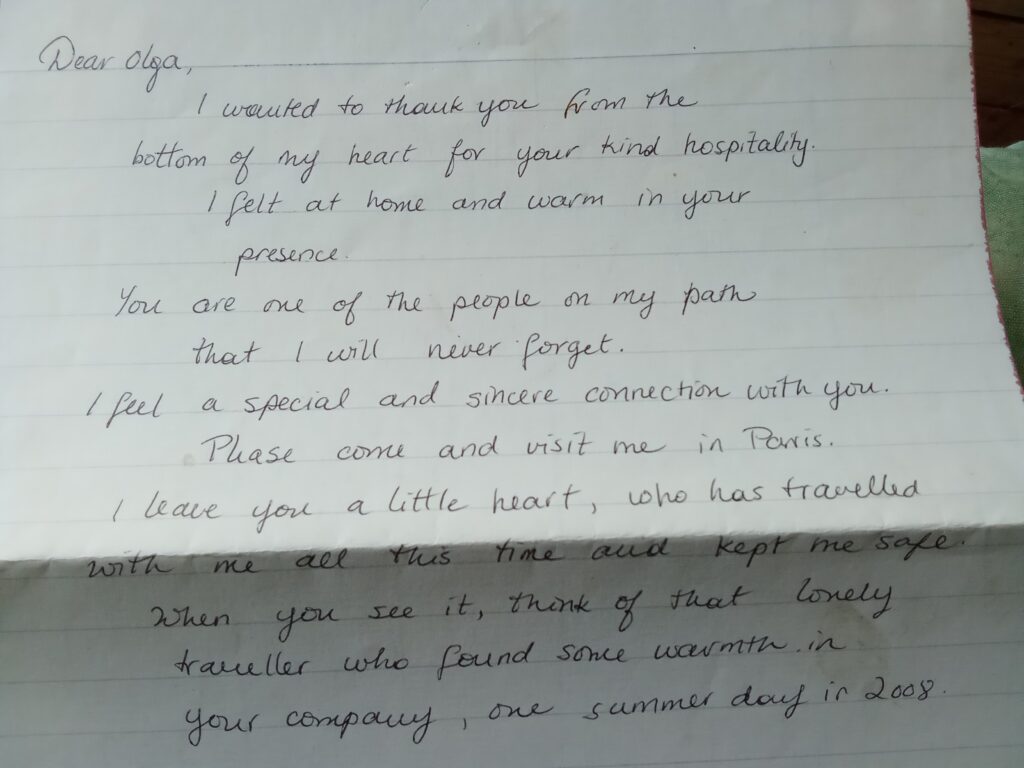 Dear Olga,
I wanted to thank you from the
bottom of my heart for your kind hospitality.
I felt at home and warm in your
presence.
You are one of the people on my path
that I will never forget.
I feel a special and sincere connection with you.
Please come and visit me in Paris.
I leave you a little heart, who has travelled
with me all this time and kept me safe.
When you see it, think of that lonely
traveller who found some warmth in
your company, one summer day in 2008.